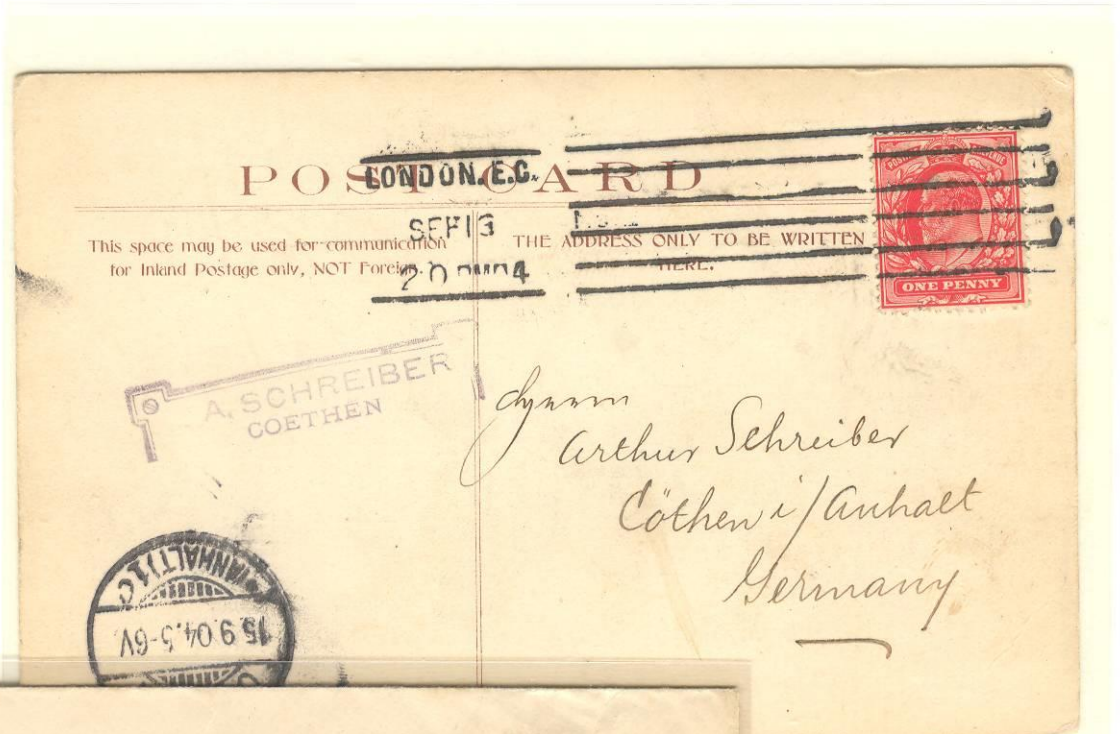 POST CARD
LONDON. E.C.
SEP 13
This space may be used for communication
for Inland Postage only, NOT Foreign.
THE ADDRESS ONLY TO BE WRITTEN
HERE.
ONE PENNY
A. SCHREIBER
COETHEN
Herrn
Arthur Schreiber
Cöthen i/Anhalt
Germany
(ANHALT) 1 C
15.9.04.5-6V.